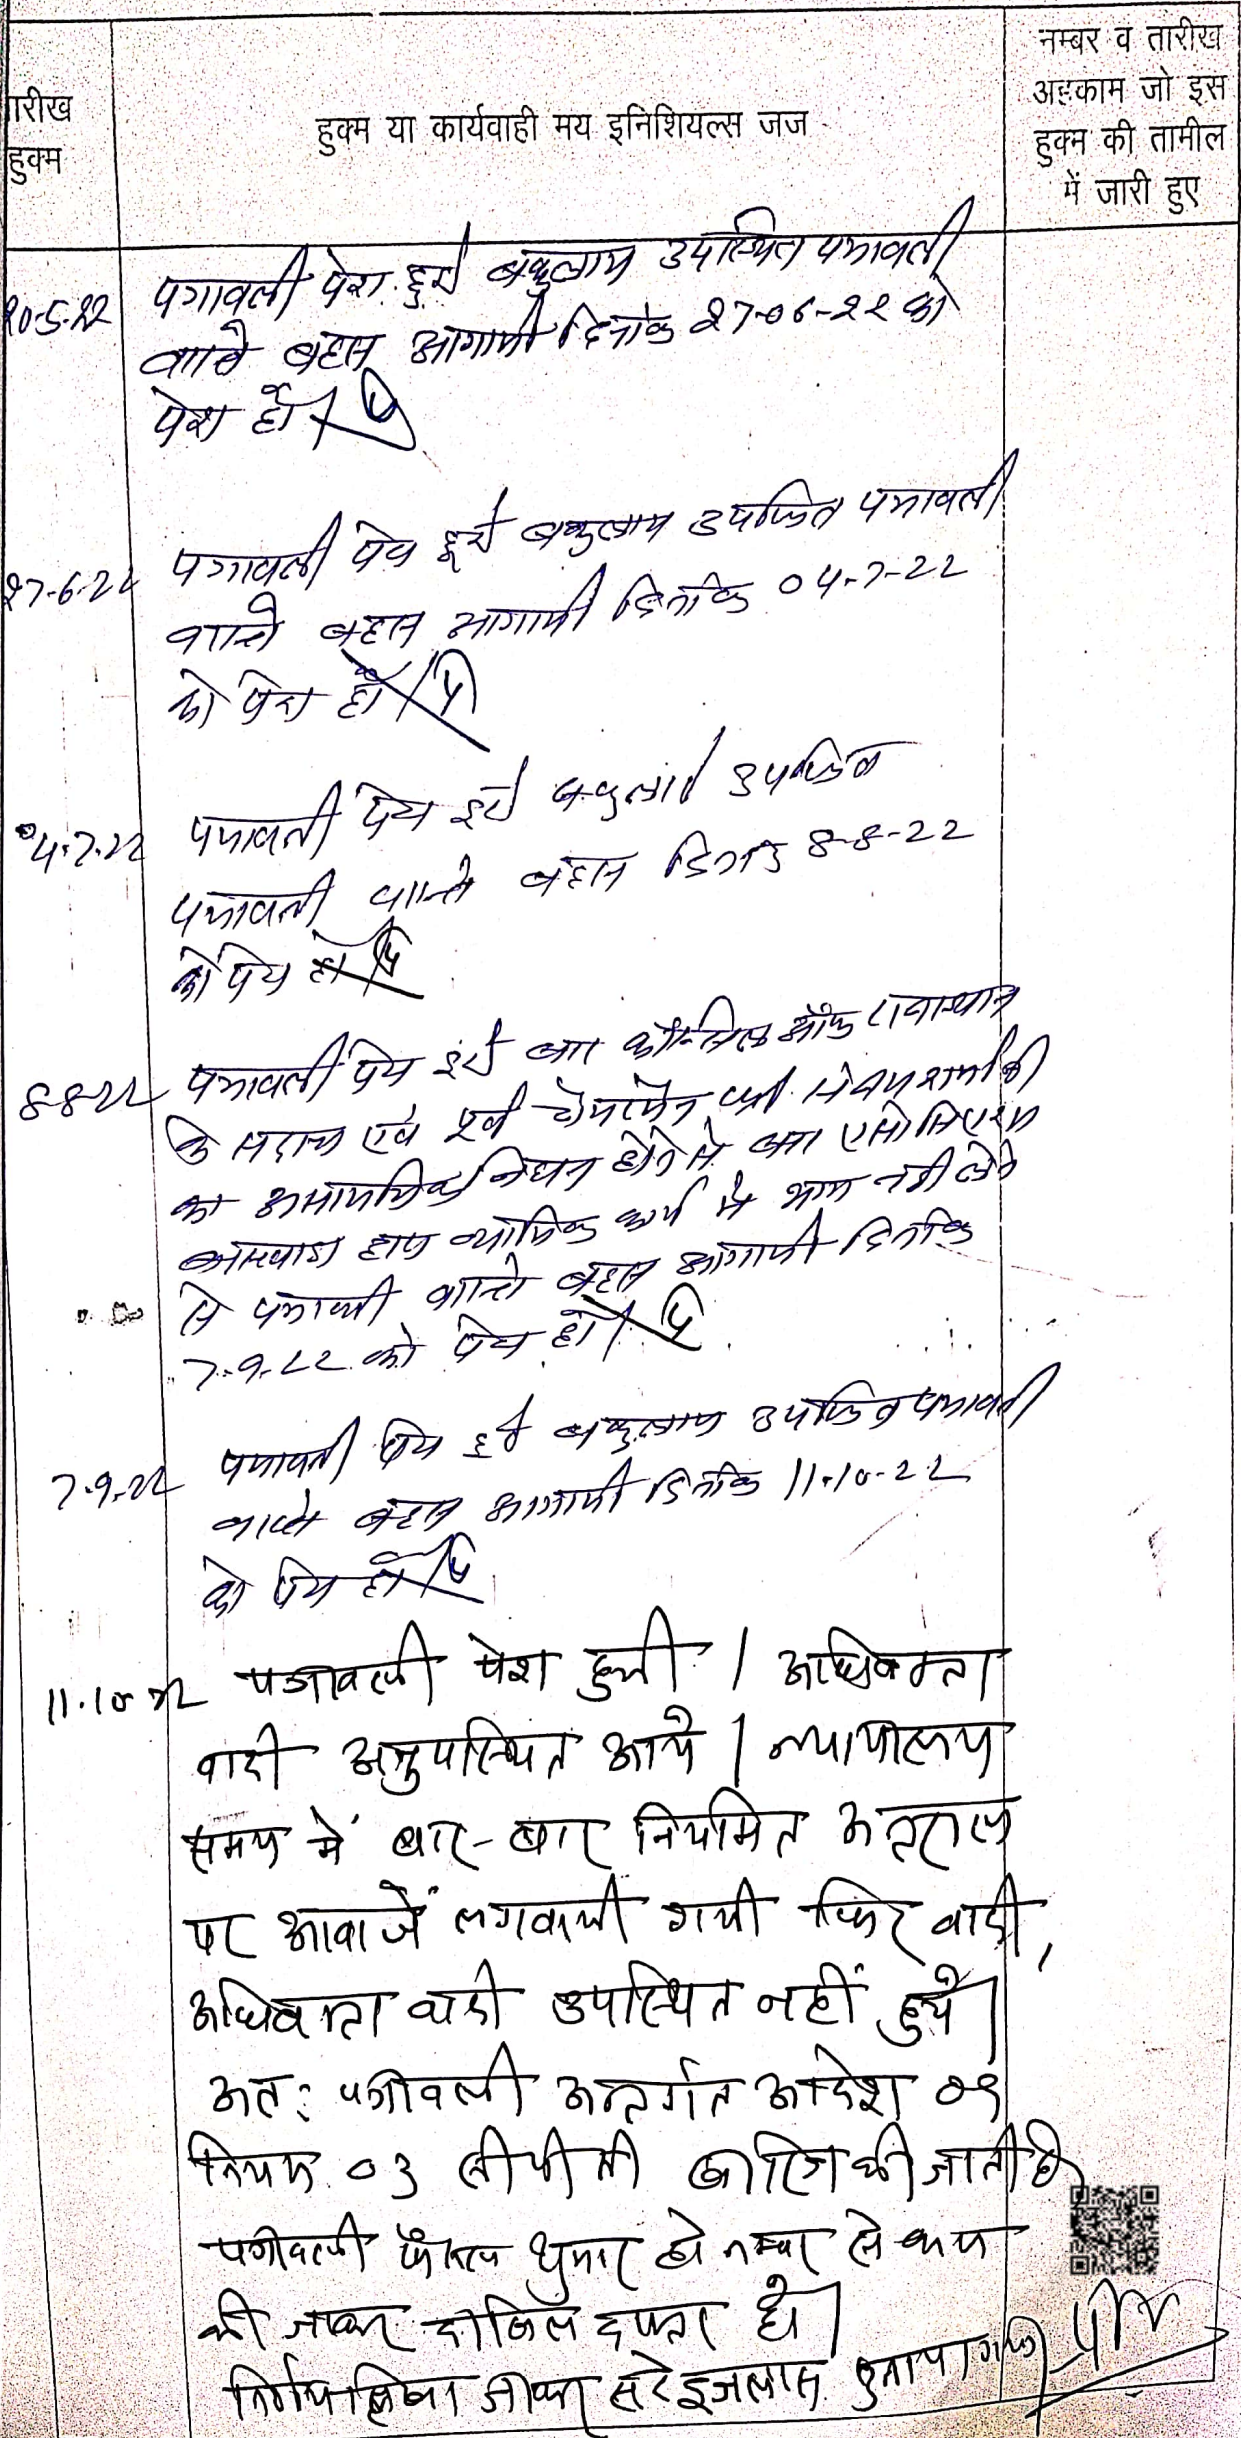 नम्बर व तारीख
अहकाम जो इस
हुक्म की तामील
में जारी हुए
तारीख
हुक्म
हुक्म या कार्यवाही मय इनिशियल्स जज
20-5-22 पत्रावली पेश हुई वकुलाय उपस्थित पत्रावली
वास्ते बहस आगामी दिनांक 27-06-22 को
पेश हो।
27-6-22 पत्रावली पेश हुई वकुलाय उपस्थित पत्रावली
वास्ते बहस आगामी दिनांक 04-7-22
को पेश हो।
04-7-22 पत्रावली पेश हुई वकुलाय उपस्थित
पत्रावली वास्ते बहस दिनांक 8-8-22
को पेश हो
8-8-22 पत्रावली पेश हुई बार कौन्सिल ऑफ राजस्थान
के सदस्य एवं पूर्व चेयरमैन श्री शर्मा जी
का असामयिक निधन होने से बार एसोसिएशन
न्यायिक कार्य में भाग नही लेने
से पत्रावली वास्ते बहस आगामी दिनांक
7-9-22 को पेश हो।
7-9-22 पत्रावली पेश हुई वकुलाय उपस्थित पत्रावली
वास्ते बहस आगामी दिनांक 11-10-22
को पेश हो।
11-10-22 पत्रावली पेश हुयी। अधिवक्ता
वादी अनुपस्थित आये। न्यायालय
समय में बार-बार नियमित अन्तराल
पर आवाजें लगवायी गयी फिर वादी,
अधिवक्ता वादी उपस्थित नहीं हुये।
अतः पत्रावली अन्तर्गत आदेश 09
नियम 03 सीपीसी खारिज की जाती है
पत्रावली फैसल शुमार हो नम्बर से कम
की जाकर दाखिल दफ्तर हो।
निर्णय लिखा जाकर सरे इजलास सुनाया गया